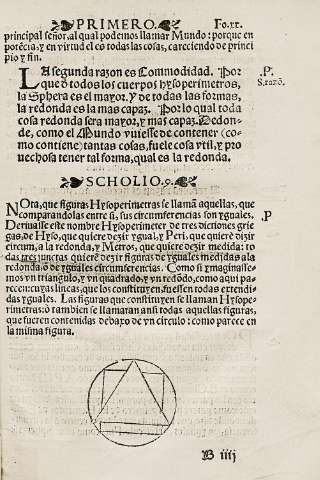 PRIMERO. Fo.xx.
principal señor, al qual podemos llamar Mundo: porque en
potēcia, y en virtud el es todas las cosas, careciendo de princi
pio y fin.
LA segunda razon es Commodidad. Por
que d̄ todos los cuerpos hysoperimetros,
la Sphera es el mayor, y de todas las formas,
la redonda es la mas capaz. Por lo qual toda
cosa redonda sera mayor, y mas capaz. Dedon-
de, como el Mundo vuiesse de contener (co
mo contiene) tantas cosas, fuele cosa vtil, y pro
uechosa tener tal forma, qual es la redonda.
.P.
S.razō.
SCHOLIO.
NOta, que figuras Hysoperimetras se llamā aquellas, que
comparandolas entre si, sus circumferencias son yguales.
Deriuasse este nombre Hysoperimeter de tres dictiones grie
gas, de Hyso, que quiere dezir ygual, y Peri, que quiere dezir
circum, a la redonda, y Metros, que quiere dezir medida: to
das tres juntas quiere dezir figuras de yguales medidas a la
redonda, o de yguales circumferencias. Como si ymaginasse-
mos vn triangulo, y vn quadrado, y vn redōdo, como aqui pa
recen: cuyas lineas, que los constituyen, fuessen todas estendi-
das yguales. Las figuras que constituyen se llaman Hysope-
rimetras: ò tambien se llamaran ansi todas aquellas figuras,
que fueren contenidas debaxo de vn circulo: como parece en
la misma figura.
.P
B iiij